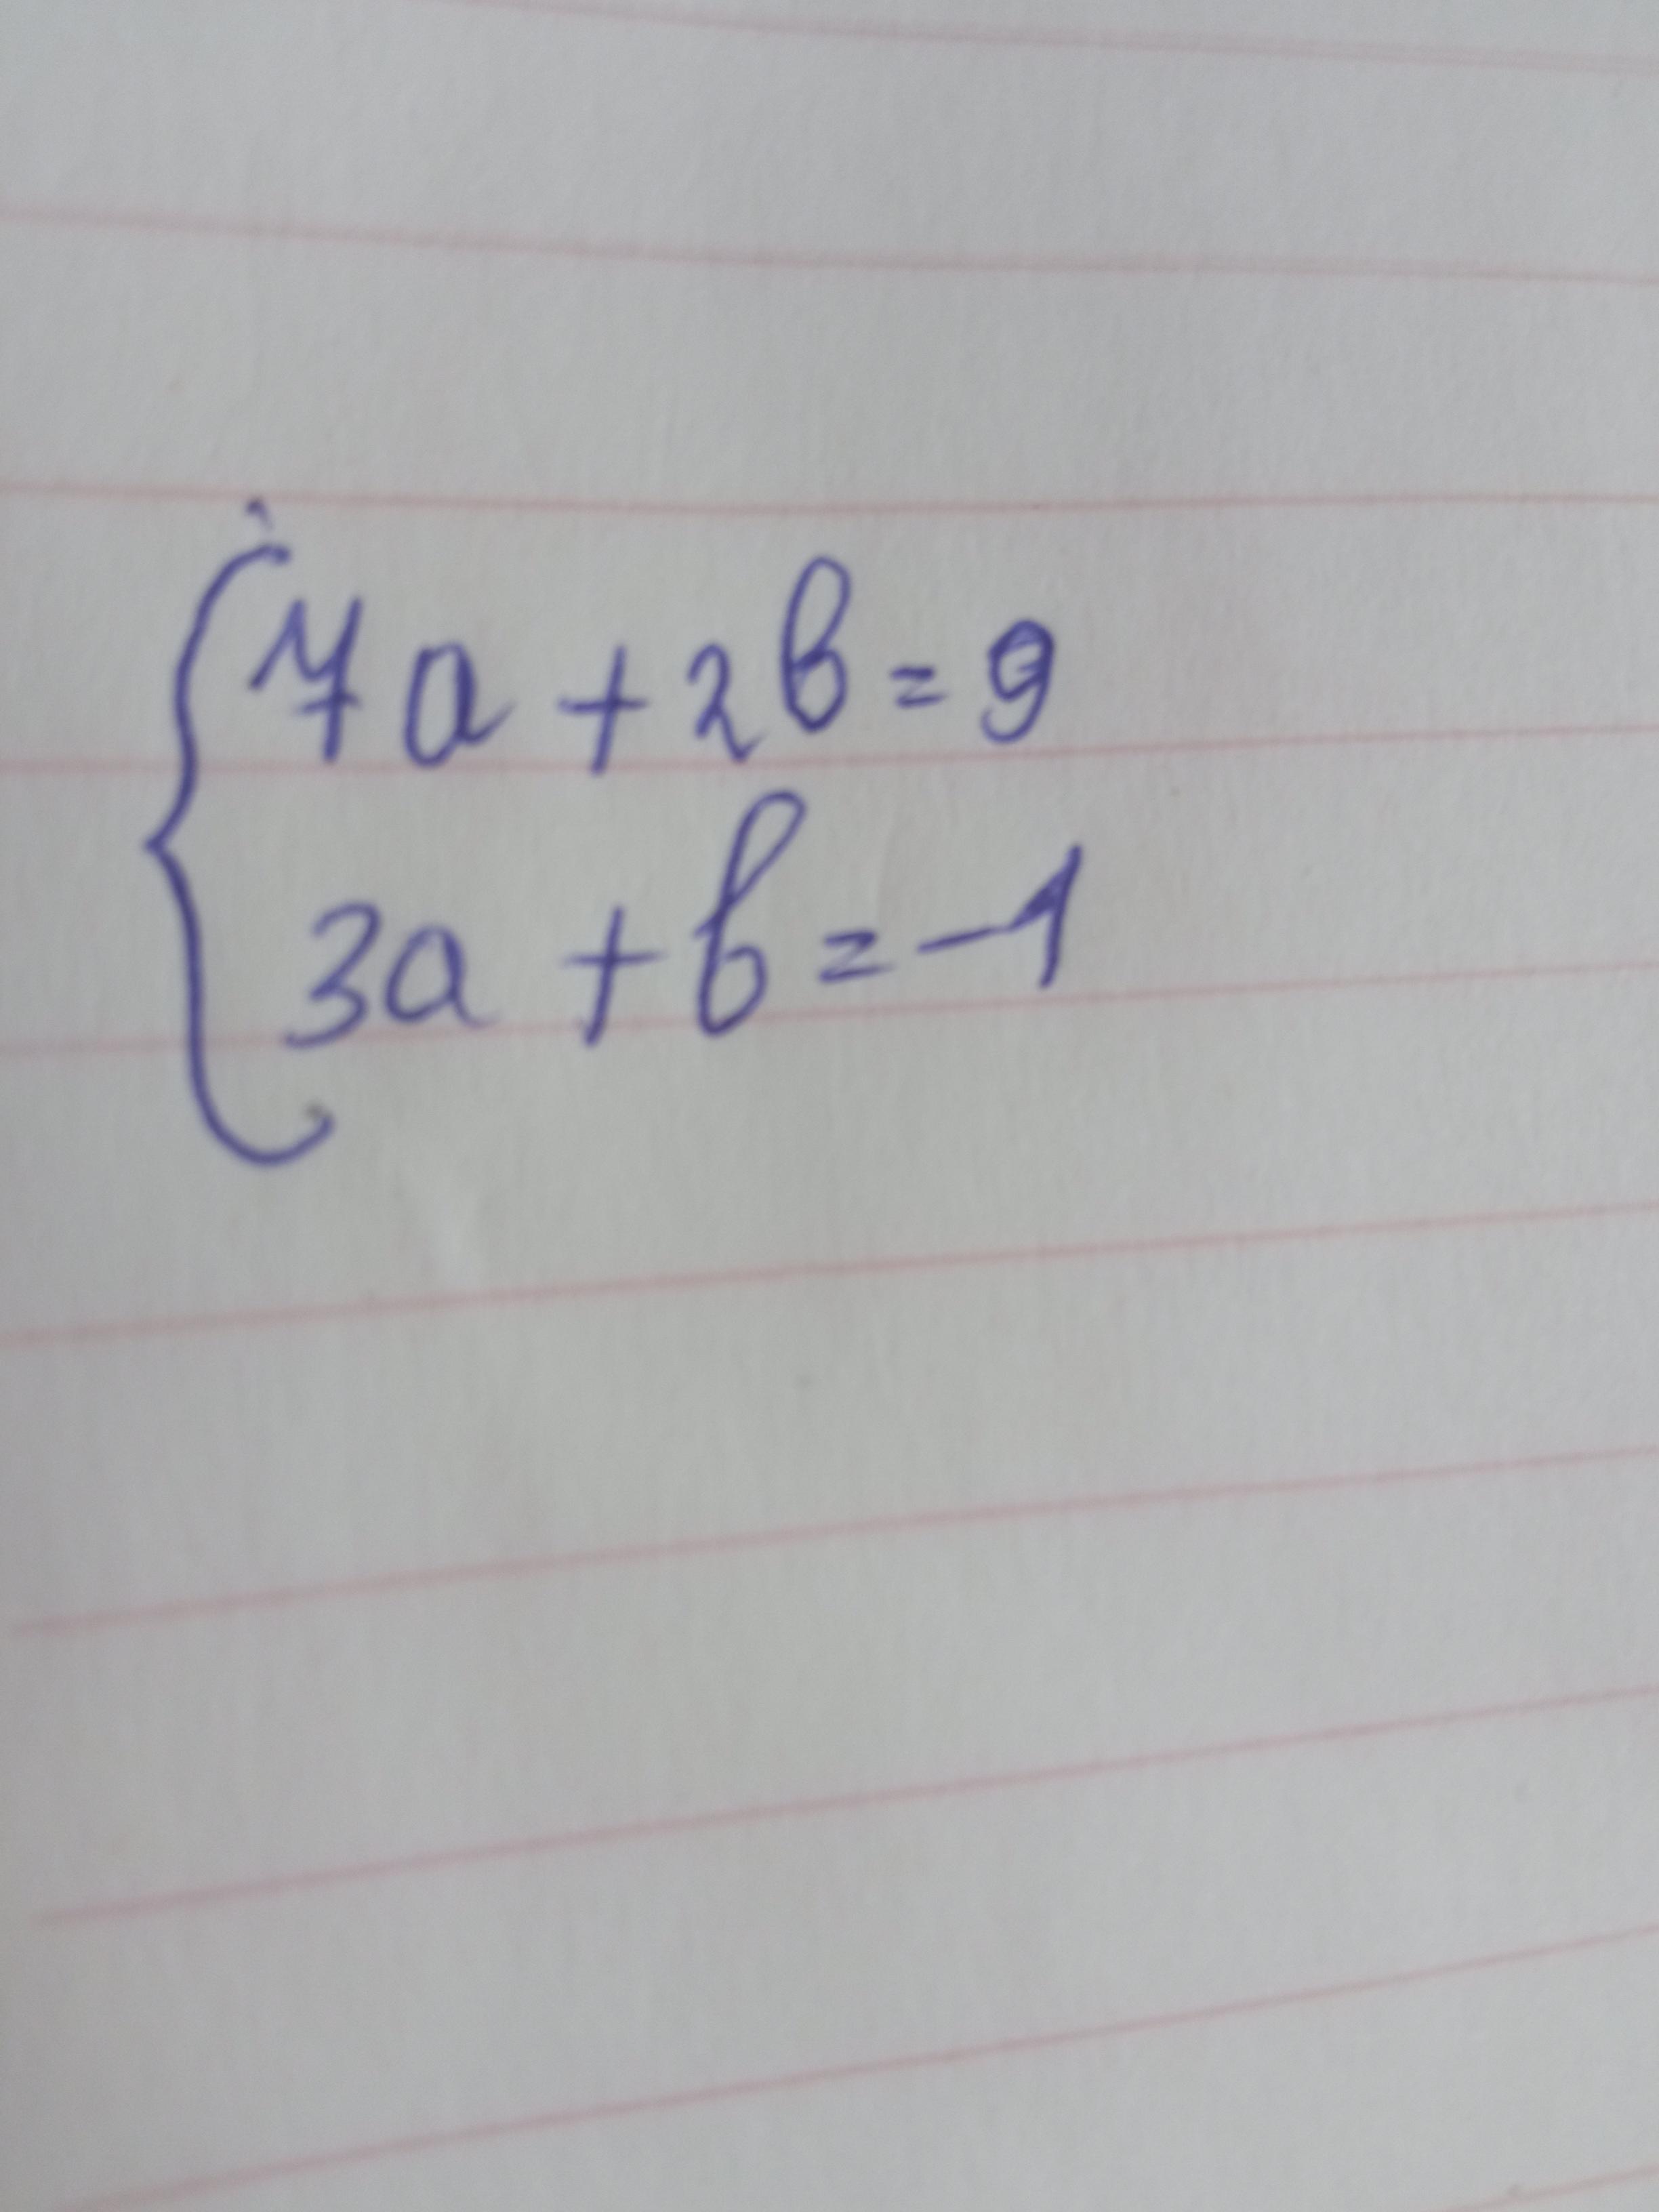 7a + 2b = 9
3a + b = -1